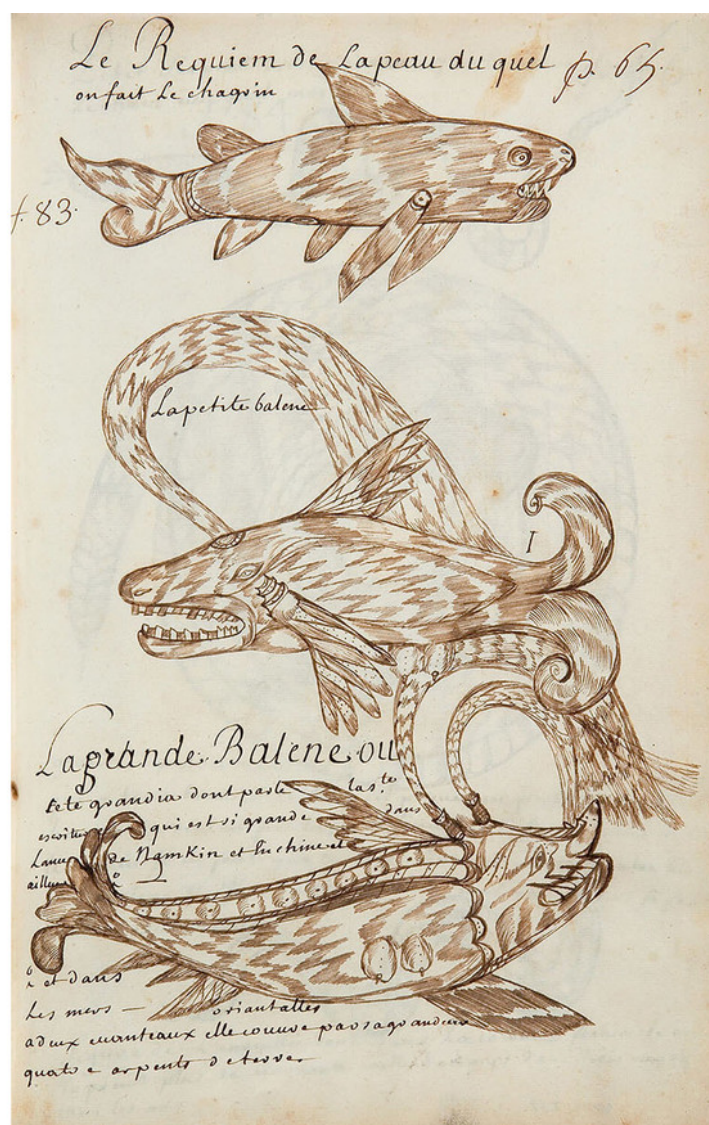 Le Requiem de Lapeau du quel
on fait Le chagrin
p. 65.
f. 83.
La petite balene
I
La grande Balene ou
tete grandia dont parle las.te
escriture qui est si grande dans
Lamer de Namkin et En chine et
ailleurs
et dans
Les mers — oriantalles
a deux evanteaux elle couvre par sa grandeur
quatre arpents de terre